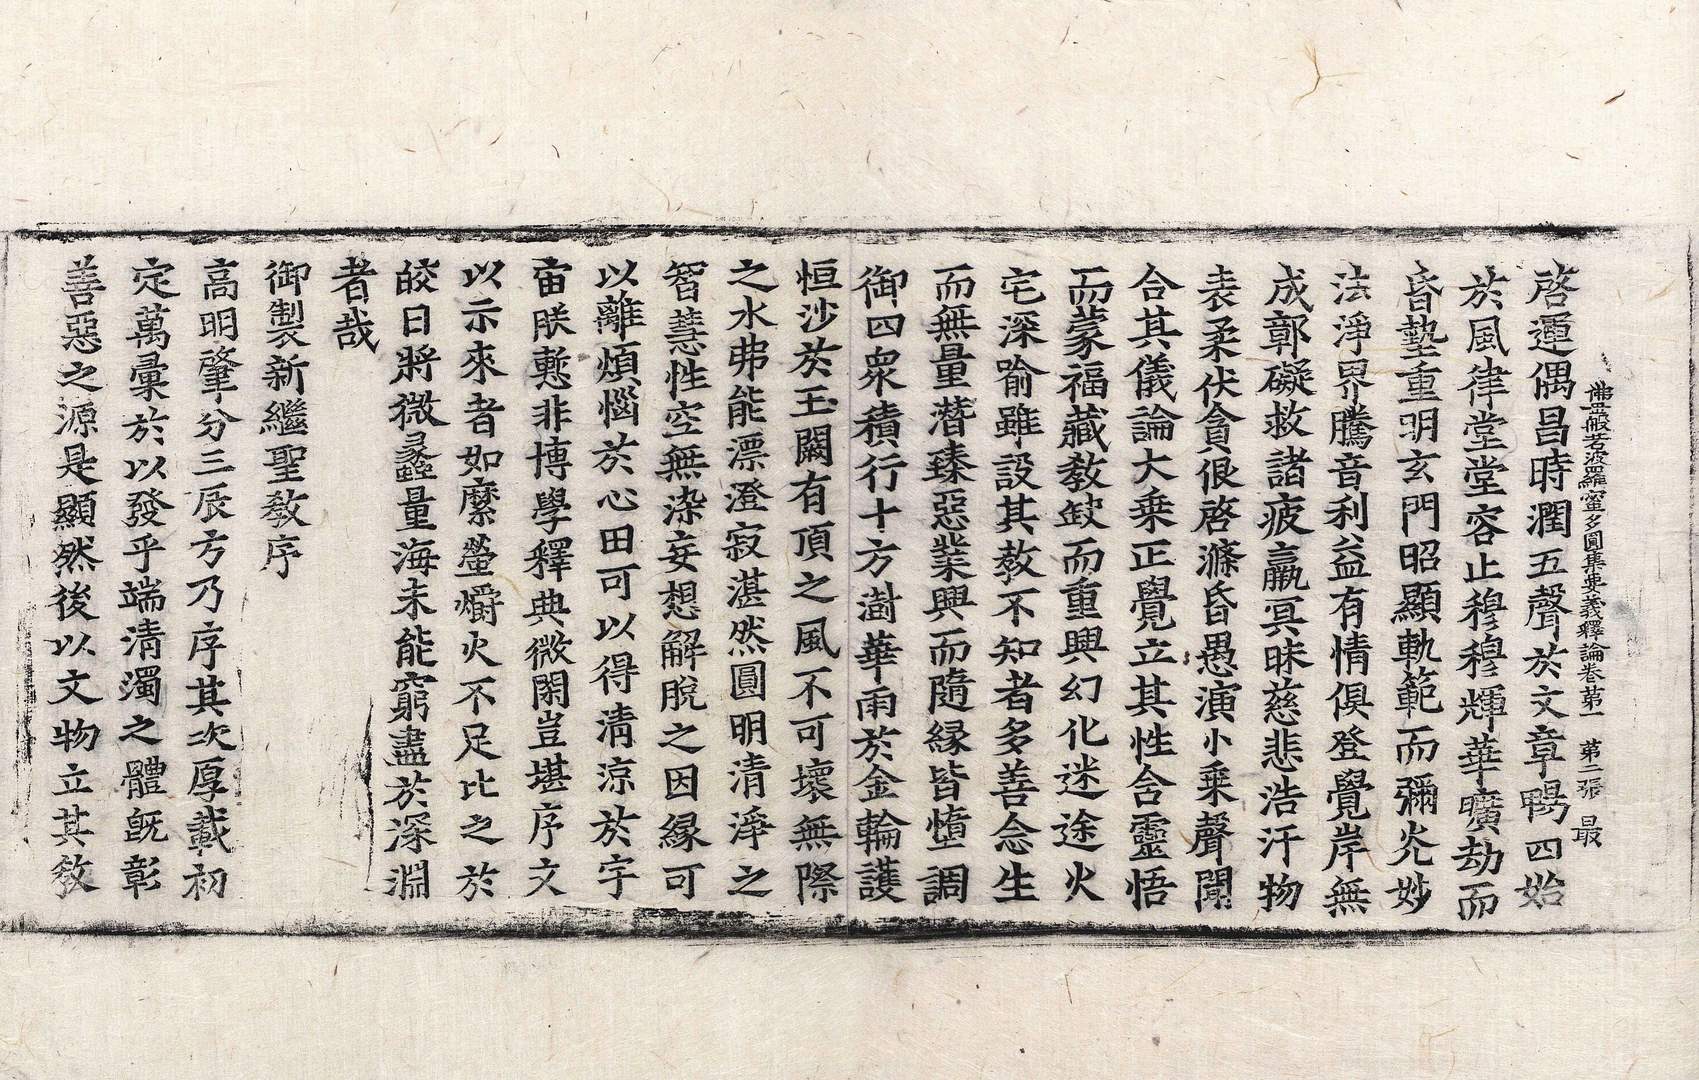 佛母般若波羅蜜多圓集要義釋論卷第一 第二張 最
啓運偶昌時潤五聲於文章暢四始
於風律堂堂容止穆穆輝華曠劫而
昏墊重明玄門昭顯軌範而彌光妙
法淨界騰音利益有情俱登覺岸無
成鄣礙救諸疲羸冥昧慈悲浩汗物
表柔伏貪佷啓滌昏愚演小乘聲聞
合其儀論大乘正覺立其性含靈悟
而蒙福藏教缺而重興幻化迷途火
宅深喻雖設其教不知者多善念生
而無量潛臻惡業興而隨緣皆墮調
御四衆積行十方澍華雨於金輪護
恒沙於玉闕有頂之風不可壞無際
之水弗能漂澄寂湛然圓明清淨之
智慧性空無染妄想解脫之因緣可
以離煩惱於心田可以得清涼於宇
宙朕慙非博學釋典微閑豈堪序文
以示來者如縻螢爝火不足比之於
皎日將微蠡量海未能窮盡於深淵
者哉
御製新繼聖教序
高明肇分三辰方乃序其次厚載初
定萬彙於以發乎端清濁之體旣彰
善惡之源是顯然後以文物立其教